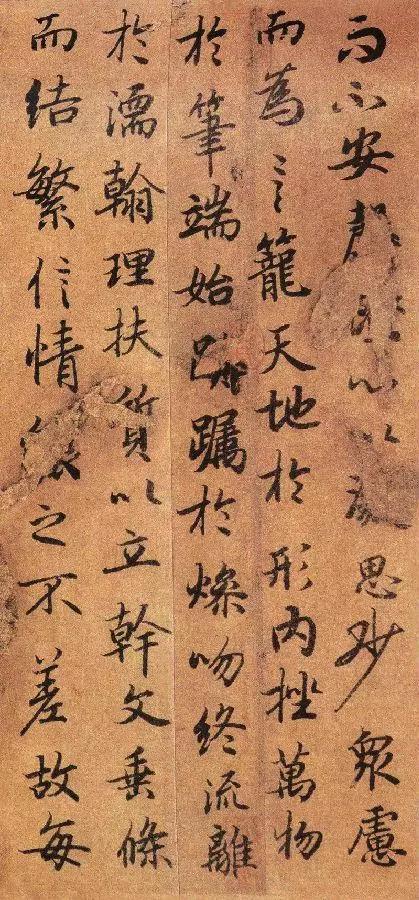 而不安心以思眇衆慮
而為言籠天地於形内挫萬物
於筆端始躅於燥吻終流離
於濡翰理扶質以立幹文垂條
而結繁信情之不差故每